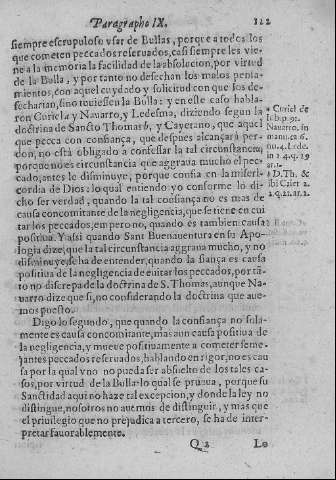 Paragrapho IX. 122
siempre escrupuloso vsar de Bullas, porque a todos los
que cometen peccados reseruados, casi siempre les vie-
ne a la memoria la facilidad de la absolucion, por virtud
de la Bulla, y por tanto no desechan los malos penta-
mientos, con aquel cuydado y solicitud con que los de-
secharian, sino tuuiessen la Bulla: y en este caso habla-
ron Curiel a y Nauarro, y Ledesma, diziendo segun la
doctrina de Sancto Thomas b, y Cayetano, que aquel
que pecca con confiança, que despues alcançará per-
don, no está obligado a confessar la tal circunstancia,
porque no es circunstancia que aggraua mucho el pec-
cado, antes le disminuye, porque confia en la miseri-
cordia de Dios: lo qual entiendo yo conforme lo di-
cho ser verdad, quando la tal confiança no es mas de
causa concomitante de la negligencia, que se tiene en eui
tar los peccados, empero no, quando es tambien causa
positiua. Y assi quando Sant Buenauentura en su Apo-
logia dize, que la tal circunstancia aggraua mucho, y no
disminuye, se ha de entender, quando la fiança es causa
positiua de la negligencia de euitar los peccados, por tá-
to no discrepa de la doctrina de S. Thomas, aunque Na-
uarro dize que si, no considerando la doctrina que aue-
mos puesto.
Digo lo segundo, que quando la confiança no sola-
mente es causa concomitante, mas aun causa positiua de
la negligencia, y mueue positiuamente a cometer seme-
jantes peccados reseruados, hablando en rigor, no es cau
sa por la qual vno no pueda ser absuelto de los tales ca-
sos, por virtud de la Bulla: lo qual se prueua, porque su
Sanctidad aqui no haze tal excepcion, y donde la ley no
distingue, nosotros no auemos de distinguir, y mas que
el priuilegio que no prejudica a tercero, se ha de inter-
pretar fauorablemente.
Q 2 Lo
a Curiel de
Nauarro, in
manu. c. 6.
nu. 4. Lede.
in 2 4. q. 19
ar. 1.
b D. Th. &
ibi Caiet 2.
2. q. 21. ar. 2.